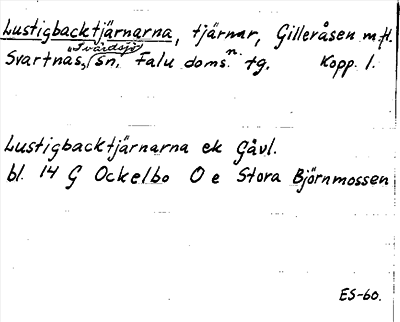 Lustigbacktjärnarna, tjärnar, Gilleråsen m.fl.
Svartnäs, Svärdsjö sn. Falu doms. n. tg. Kopp. l.
Lustigbacktjärnarna ek Gävl.
bl. 14 G Ockelbo O e Stora Björnmossen
ES-60.